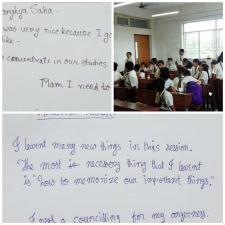 Saha -
was very nice because I g
like -
concentrate in our studies
Mam I need to
I learnt many new things in this session.
The most is necessry thing that I learnt
is "how to memorize our important things."
I need a councilling for my angerness.